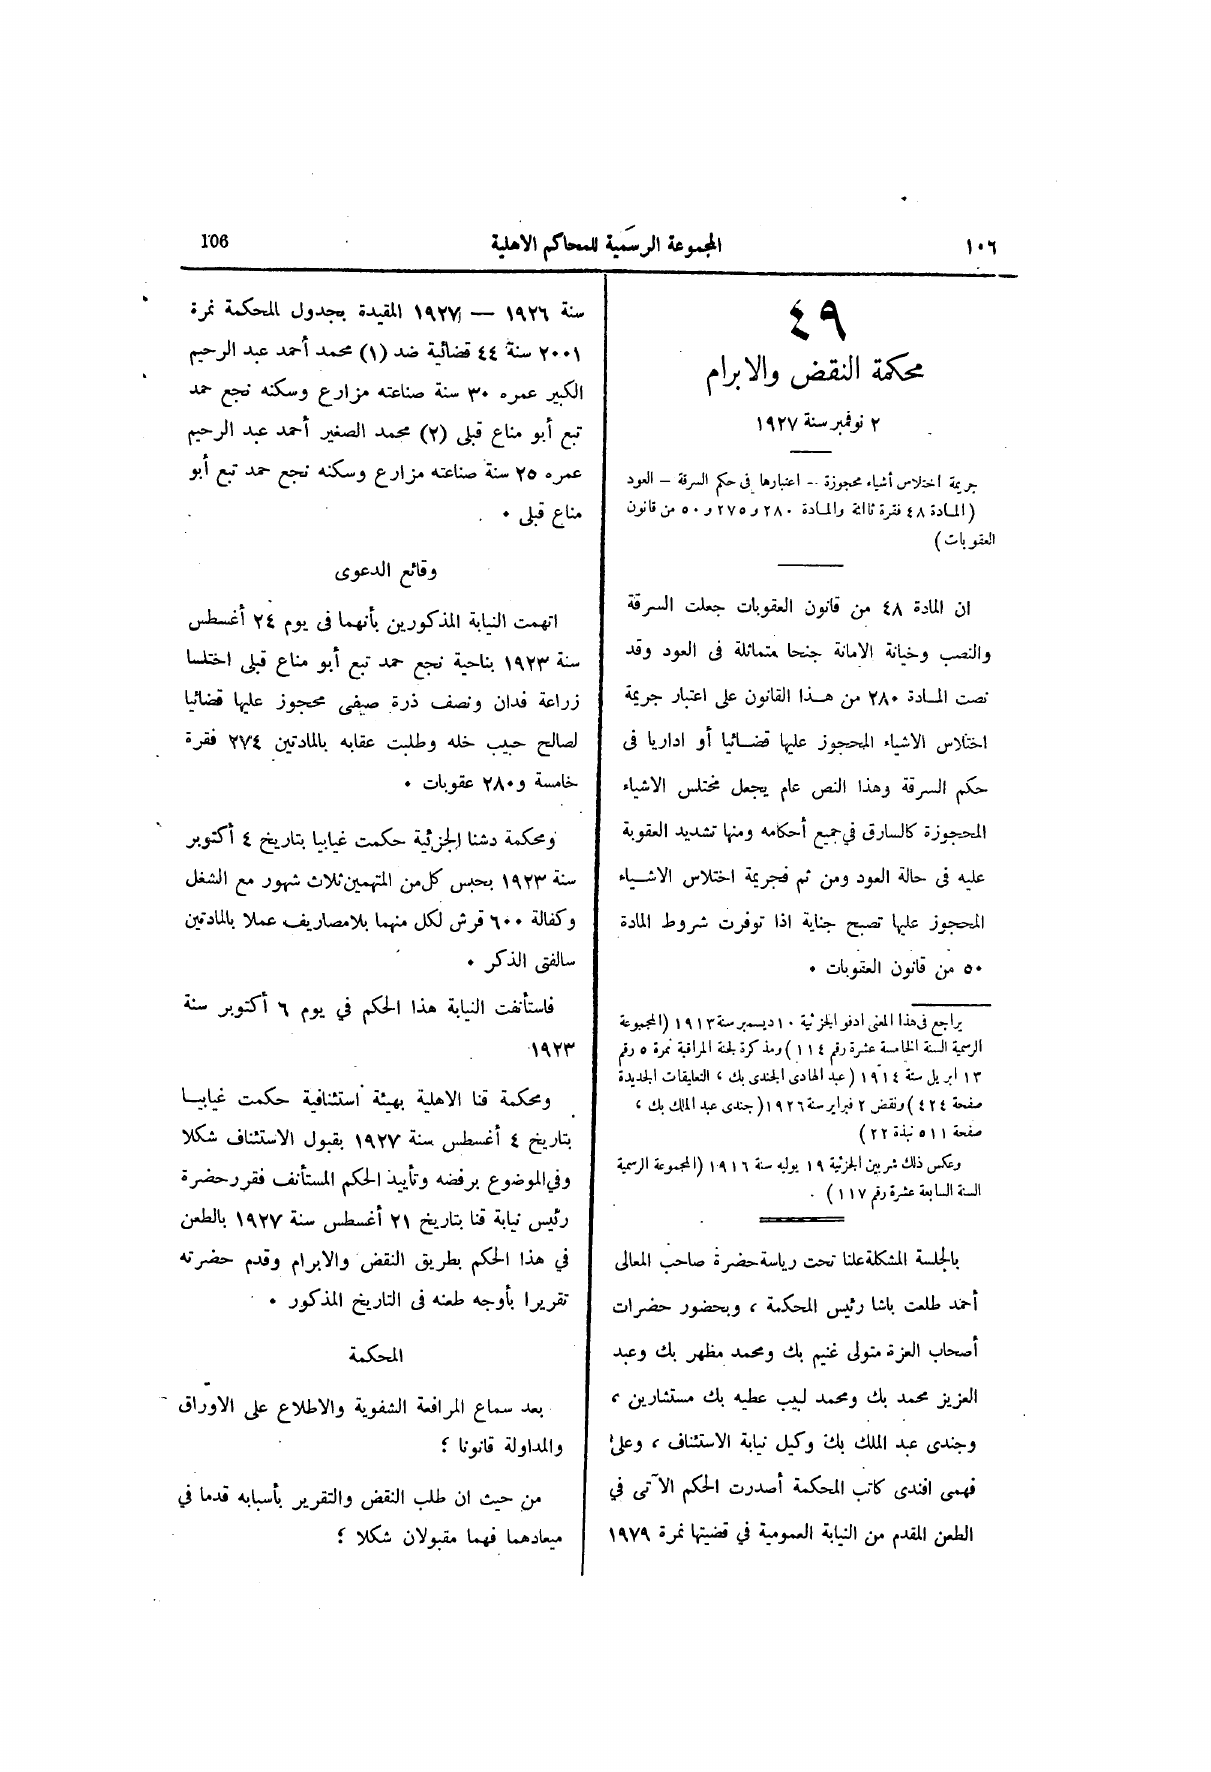 ١٠٦ المجموعة الرسمية للمحاكم الاهلية 106
٤٩
محكمة النقض والابرام
٢ نوفمبر سنة ١٩٢٧
جريمة اختلاس أشياء محجوزة — اعتبارها فى حكم السرقة — العود
(المادة ٤٨ فقرة ثالثة والمادة ٢٨٠ و٢٧٥ و٥٠ من قانون
العقوبات)
ان المادة ٤٨ من قانون العقوبات جعلت السرقة
والنصب وخيانة الامانة جنحا متماثلة فى العود وقد
نصت المادة ٢٨٠ من هذا القانون على اعتبار جريمة
اختلاس الاشياء المحجوز عليها قضائيا أو اداريا فى
حكم السرقة وهذا النص عام يجعل مختلس الاشياء
المحجوزة كالسارق في جميع أحكامه ومنها تشديد العقوبة
عليه فى حالة العود ومن ثم فجريمة اختلاس الاشياء
المحجوز عليها تصبح جناية اذا توفرت شروط المادة
٥٠ من قانون العقوبات ٠
يراجع فى هذا المعنى ادفو الجزئية ١٠ ديسمبر سنة ١٩١٣ (المجموعة
الرسمية السنة الخامسة عشرة رقم ١١٤) ومذكرة لجنة المراقبة نمرة ٥ رقم
١٣ ابريل سنة ١٩١٤ (عبد الهادى الجندى بك ، التعليقات الجديدة
صفحة ٤٢٤) ونقض ٢ فبراير سنة ١٩٢٦ (جندى عبد الملك بك ،
صفحة ٥١١ نبذة ٢٢)
وعكس ذلك شربين الجزئية ١٩ يوليه سنة ١٩١٦ (المجموعة الرسمية
السنة السابعة عشرة رقم ١١٧) .
بالجلسة المشكلة علنا تحت رياسة حضرة صاحب المعالى
أحمد طلعت باشا رئيس المحكمة ، وبحضور حضرات
أصحاب العزة متولى غنيم بك ومحمد مظهر بك وعبد
العزيز محمد بك ومحمد لبيب عطيه بك مستشارين ،
وجندى عبد الملك بك وكيل نيابة الاستئناف ، وعلى
فهمى افندى كاتب المحكمة أصدرت الحكم الآتى في
الطعن المقدم من النيابة العمومية في قضيتها نمرة ١٩٧٩
سنة ١٩٢٦ — ١٩٢٧ المقيدة بجدول المحكمة نمرة
٢٠٠١ سنة ٤٤ قضائية ضد (١) محمد أحمد عبد الرحيم
الكبير عمره ٣٠ سنة صناعته مزارع وسكنه نجع حمد
تبع أبو مناع قبلى (٢) محمد الصغير أحمد عبد الرحيم
عمره ٢٥ سنة صناعته مزارع وسكنه نجع حمد تبع أبو
مناع قبلى ٠
وقائع الدعوى
اتهمت النيابة المذكورين بأنهما فى يوم ٢٤ أغسطس
سنة ١٩٢٣ بناحية نجع حمد تبع أبو مناع قبلى اختلسا
زراعة فدان ونصف ذرة صيفى محجوز عليها قضائيا
لصالح حبيب خله وطلبت عقابه بالمادتين ٢٧٤ فقرة
خامسة و٢٨٠ عقوبات ٠
ومحكمة دشنا الجزئية حكمت غيابيا بتاريخ ٤ أكتوبر
سنة ١٩٢٣ بحبس كل من المتهمين ثلاث شهور مع الشغل
وكفالة ٦٠٠ قرش لكل منهما بلامصاريف عملا بالمادتين
سالفتى الذكر ٠
فاستأنفت النيابة هذا الحكم في يوم ٦ أكتوبر سنة
١٩٢٣
ومحكمة قنا الاهلية بهيئة استئنافية حكمت غيابيا
بتاريخ ٤ أغسطس سنة ١٩٢٧ بقبول الاستئناف شكلا
وفي الموضوع برفضه وتأييد الحكم المستأنف فقرر حضرة
رئيس نيابة قنا بتاريخ ٢١ أغسطس سنة ١٩٢٧ بالطعن
في هذا الحكم بطريق النقض والابرام وقدم حضرته
تقريرا بأوجه طعنه فى التاريخ المذكور ٠
المحكمة
بعد سماع المرافعة الشفوية والاطلاع على الاوراق
والمداولة قانونا ؛
من حيث ان طلب النقض والتقرير بأسبابه قدما في
ميعادهما فهما مقبولان شكلا ؛